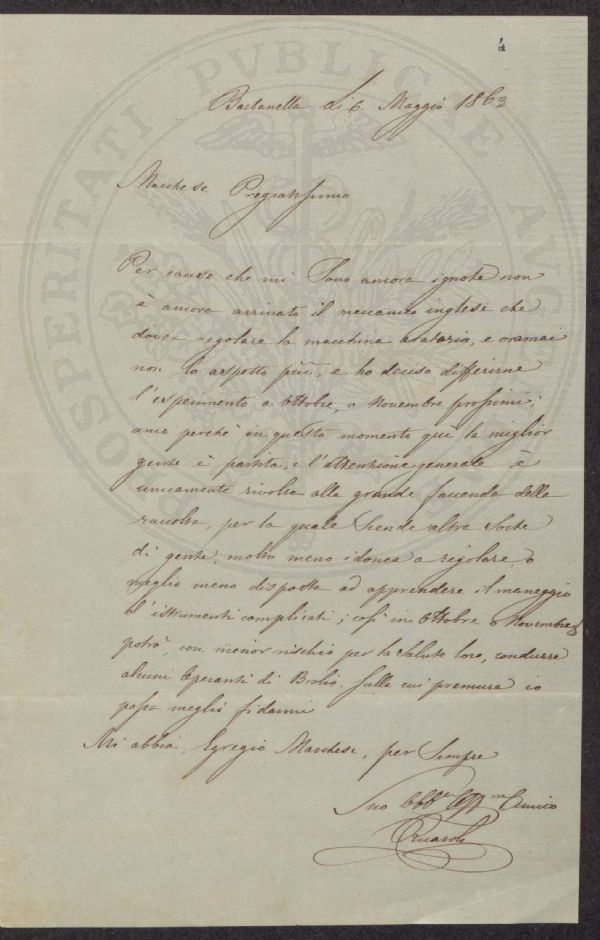 4
PROSPERITATI PVBLICAE AVG
Barbanella Li 6 Maggio 1863
Marchese Pregiatissimo
Per cause che mi sono ancora ignote non
è ancora arrivato il meccanico inglese che
dovea regolare la macchina aratoria, e oramai
non lo aspetto più, e ho deciso differirne
l'esperimento a Ottobre, o Novembre prossimi;
anco perchè in questo momento qui la miglior
gente è partita, e l'attenzione generale è
unicamente rivolta alla grande faccenda della
raccolta, per la quale scende altra sorte
di gente, molto meno idonea a regolare, o
meglio meno disposta ad apprendere il maneggio
d'istrumenti complicati; così in Ottobre o Novembre
potrò, con minor rischio per la salute loro, condurre
alcuni Operanti di Brolio, sulle cui premure io
possa meglio fidarmi
Mi abbia, Egregio Marchese, per sempre
Suo Amico
BRicasoli